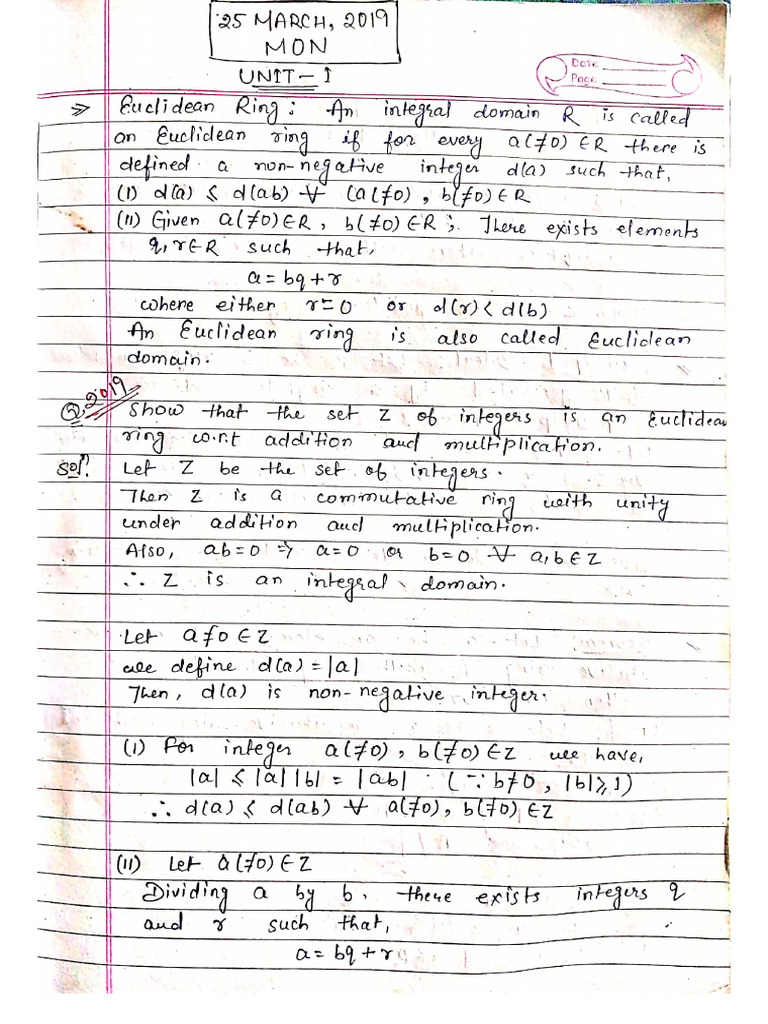 25 MARCH, 2019
MON
UNIT-I
Date
Page
⇒ Euclidean Ring: An integral domain R is called
an Euclidean ring if for every a(≠0) ∈R there is
defined a non-negative integer d(a) such that,
(I) d(a) ≤ d(ab) ∀ (a(≠0), b(≠0)∈R
(II) Given a(≠0)∈R, b(≠0)∈R; There exists elements
q,r∈R such that,
a = bq + r
where either r=0 or d(r)< d(b)
An Euclidean ring is also called Euclidean
domain.
Q. 2019 Show that the set Z of integers is an Euclidean
ring w.r.t addition and multiplication.
Solⁿ. Let Z be the set of integers.
Then Z is a commutative ring with unity
under addition and multiplication.
Also, ab=0 ⇒ a=0 or b=0 ∀ a,b∈Z
∴ Z is an integral domain.
Let a≠0 ∈ Z
we define d(a) = |a|
Then, d(a) is non-negative integer.
(I) For integer a(≠0), b(≠0)∈Z we have,
|a| ≤ |a| |b| = |ab| (∵ b≠0, |b|≥1)
∴ d(a) ≤ d(ab) ∀ a(≠0), b(≠0)∈Z
(II) Let a(≠0)∈Z
Dividing a by b, there exists integers q
and r such that,
a = bq + r